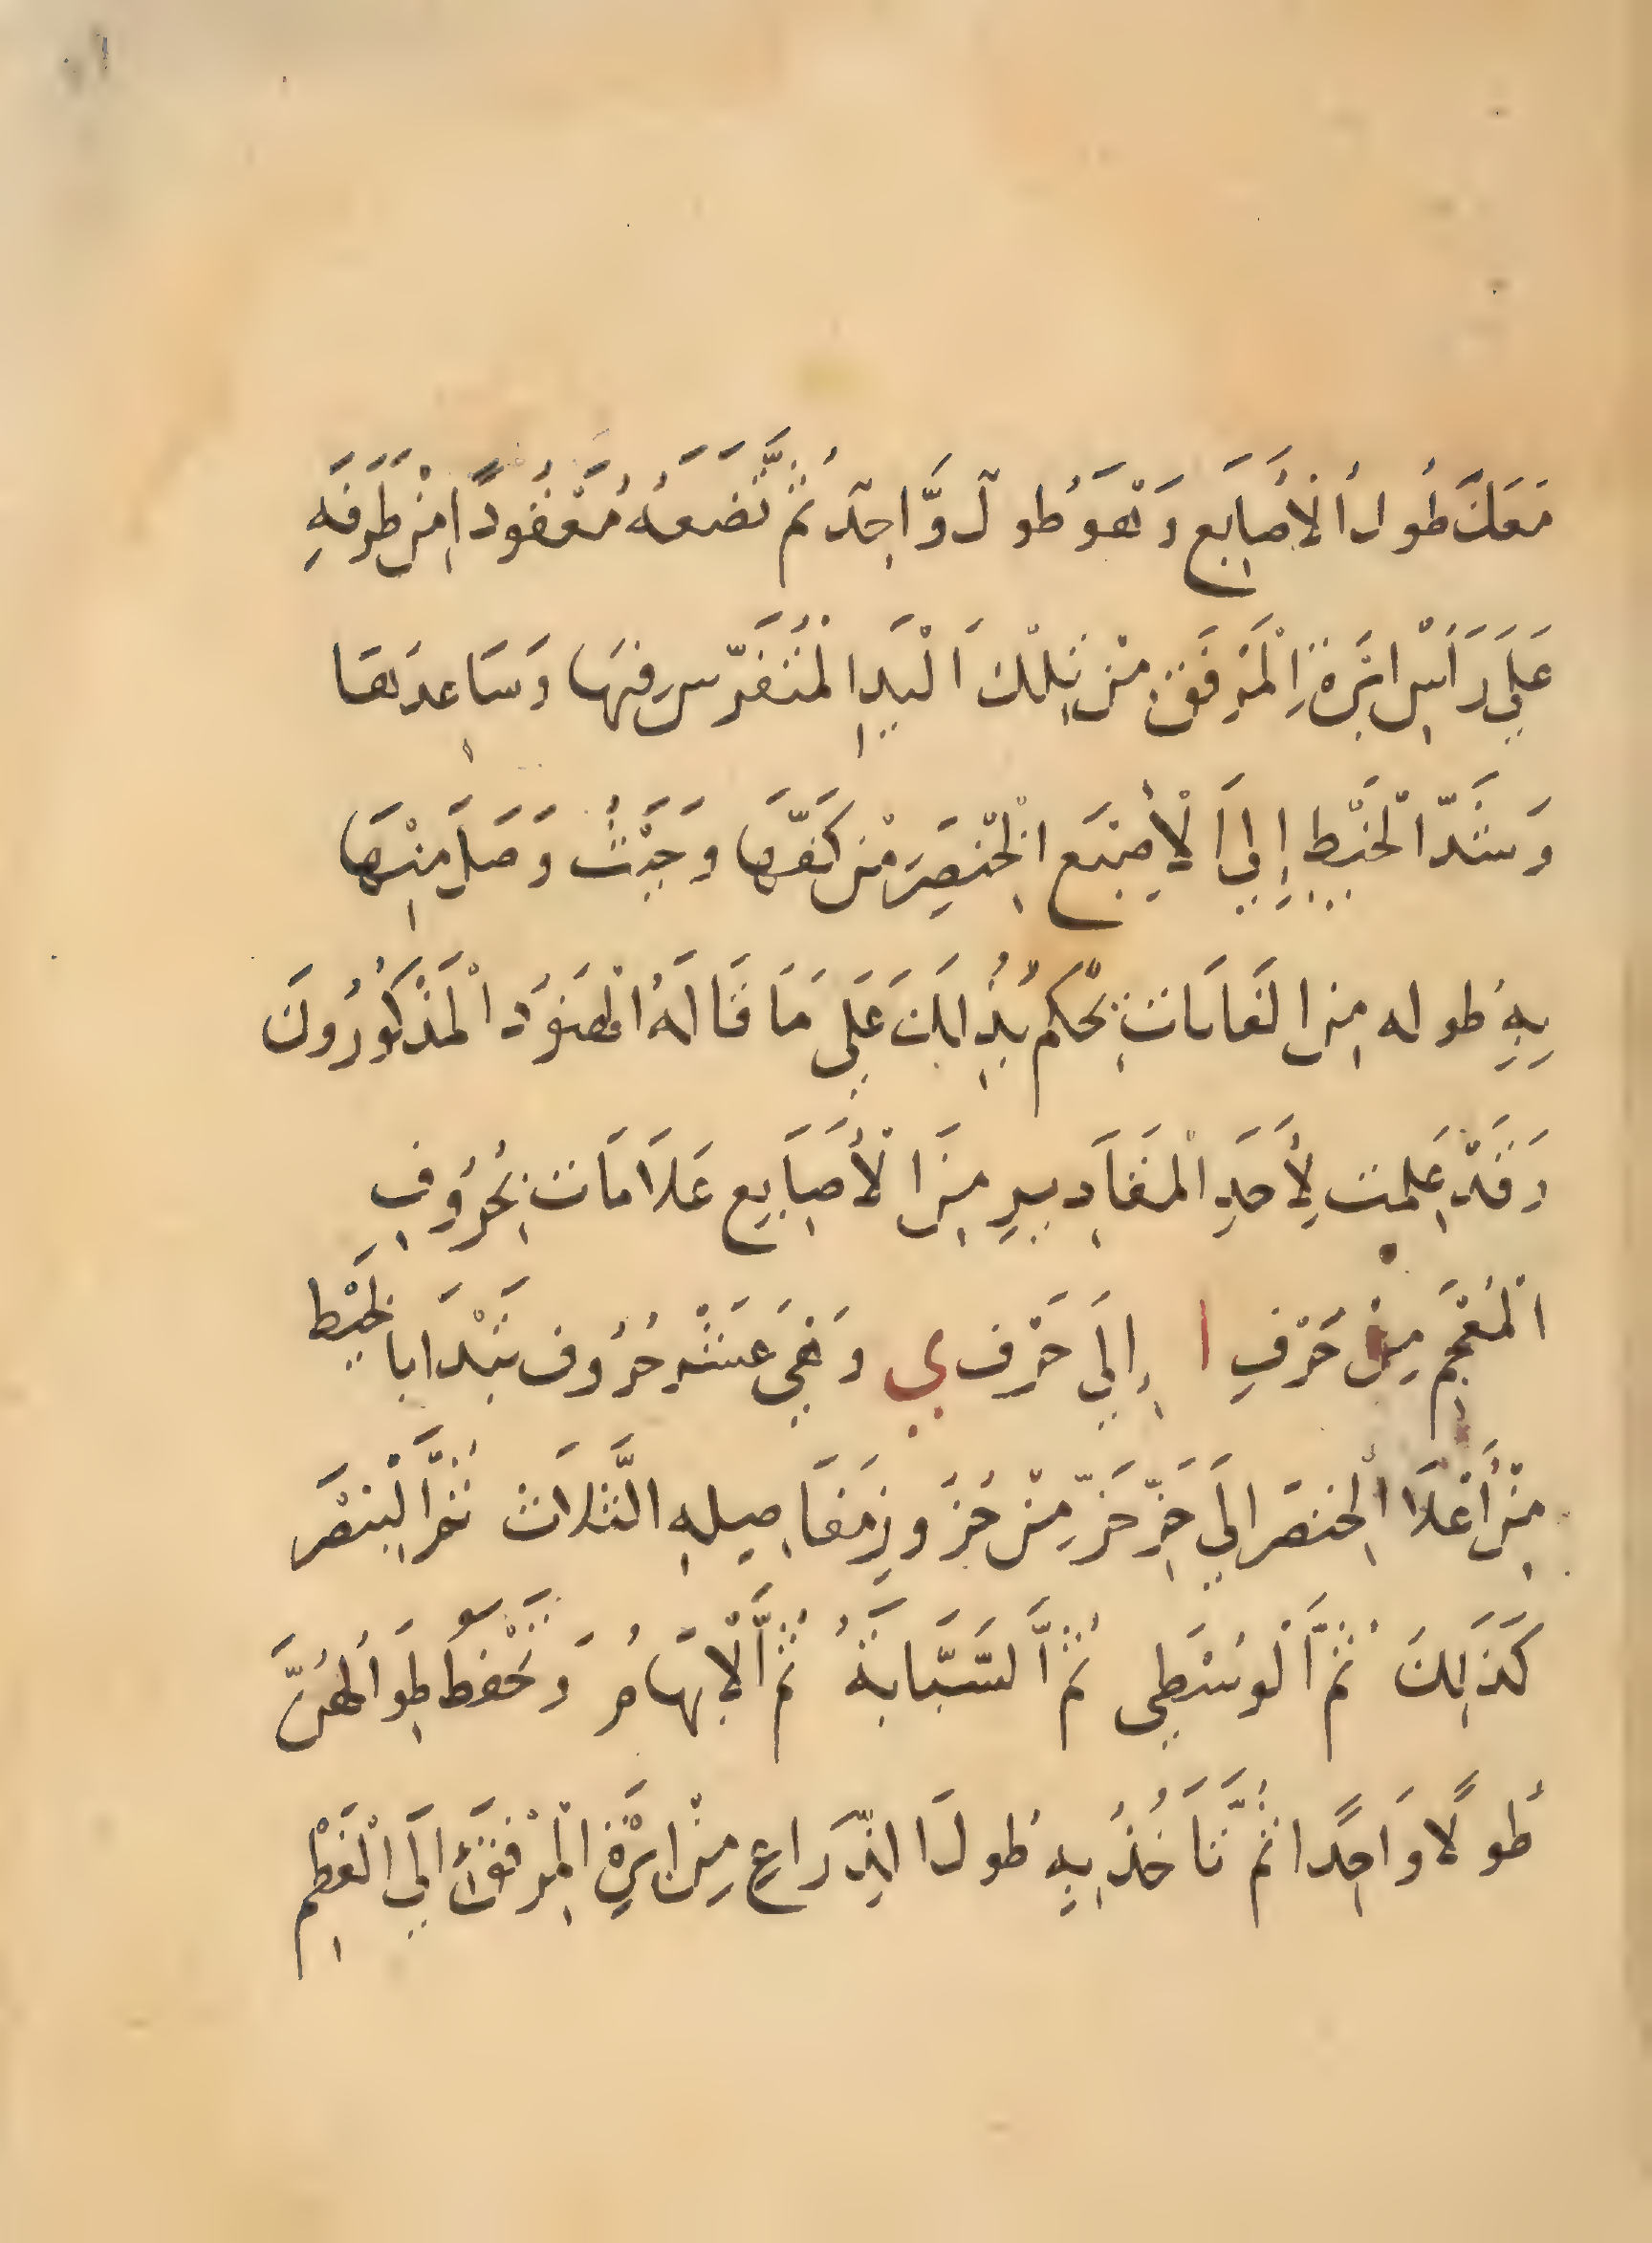 مَعَكَ طُولُ الْأَصَابِع وَهْوَ طُول وَّاحِد ثُمَّ تَّضَعَهُ مَعْقُودًا مِنْ طَرَفَهِ
عَلَي رَاْسِ ابْرَةِ الْمَرْفَقِ مْن تِلْكَ الْيَدِ الْمُتَفَرَّس فيهَا وَسَاعِدهَا
وَشَدّ الْخَيْطِ إِلي الْأُصْبَع الْخِنْصِرَ مْن كَفّهَا وَحَيْثُ وَصَلَ مِنْهَا
بِهِ طُوله مِن الغَايَات تحْكم بُذِلكَ عَلي مَا قَالهُ الْهنوَد الْمَذْكُورُونَ
وَقَدْ عَلِمت لِأَحَدِ الْمَقَادِير مِنَ الْأَصَابِع عَلَامَات بِحُرُوفِ
الْمُعْجَم مِنْ حَرْفِ ا إِلَي حَرْف ي وَهِيَ عَشَرْ حُرُوف تَبْدَا بالخَيْط
مِنْ أَعْلَا الْخِنصَر الَي حَزّ حَزّ مِنْ حُزُوزِ مَفَاصِيلهِ الثَّلَاث ثُمَّ الْبِنصَر
كَذَلِكَ ثُمَّ الْوسْطِي ثُمَّ السَّبَّابَةُ ثُمَّ الْابهَامُ وَتَحْفَظ طوَالهُنَّ
طُولًا وَاحِدًا ثُمَّ تَاَخُذُ بِهِ طُولَ الذِّرَاعِ مِنْ ابْرَةِ الْمِرْفقَ الَي الْعَظْمِ